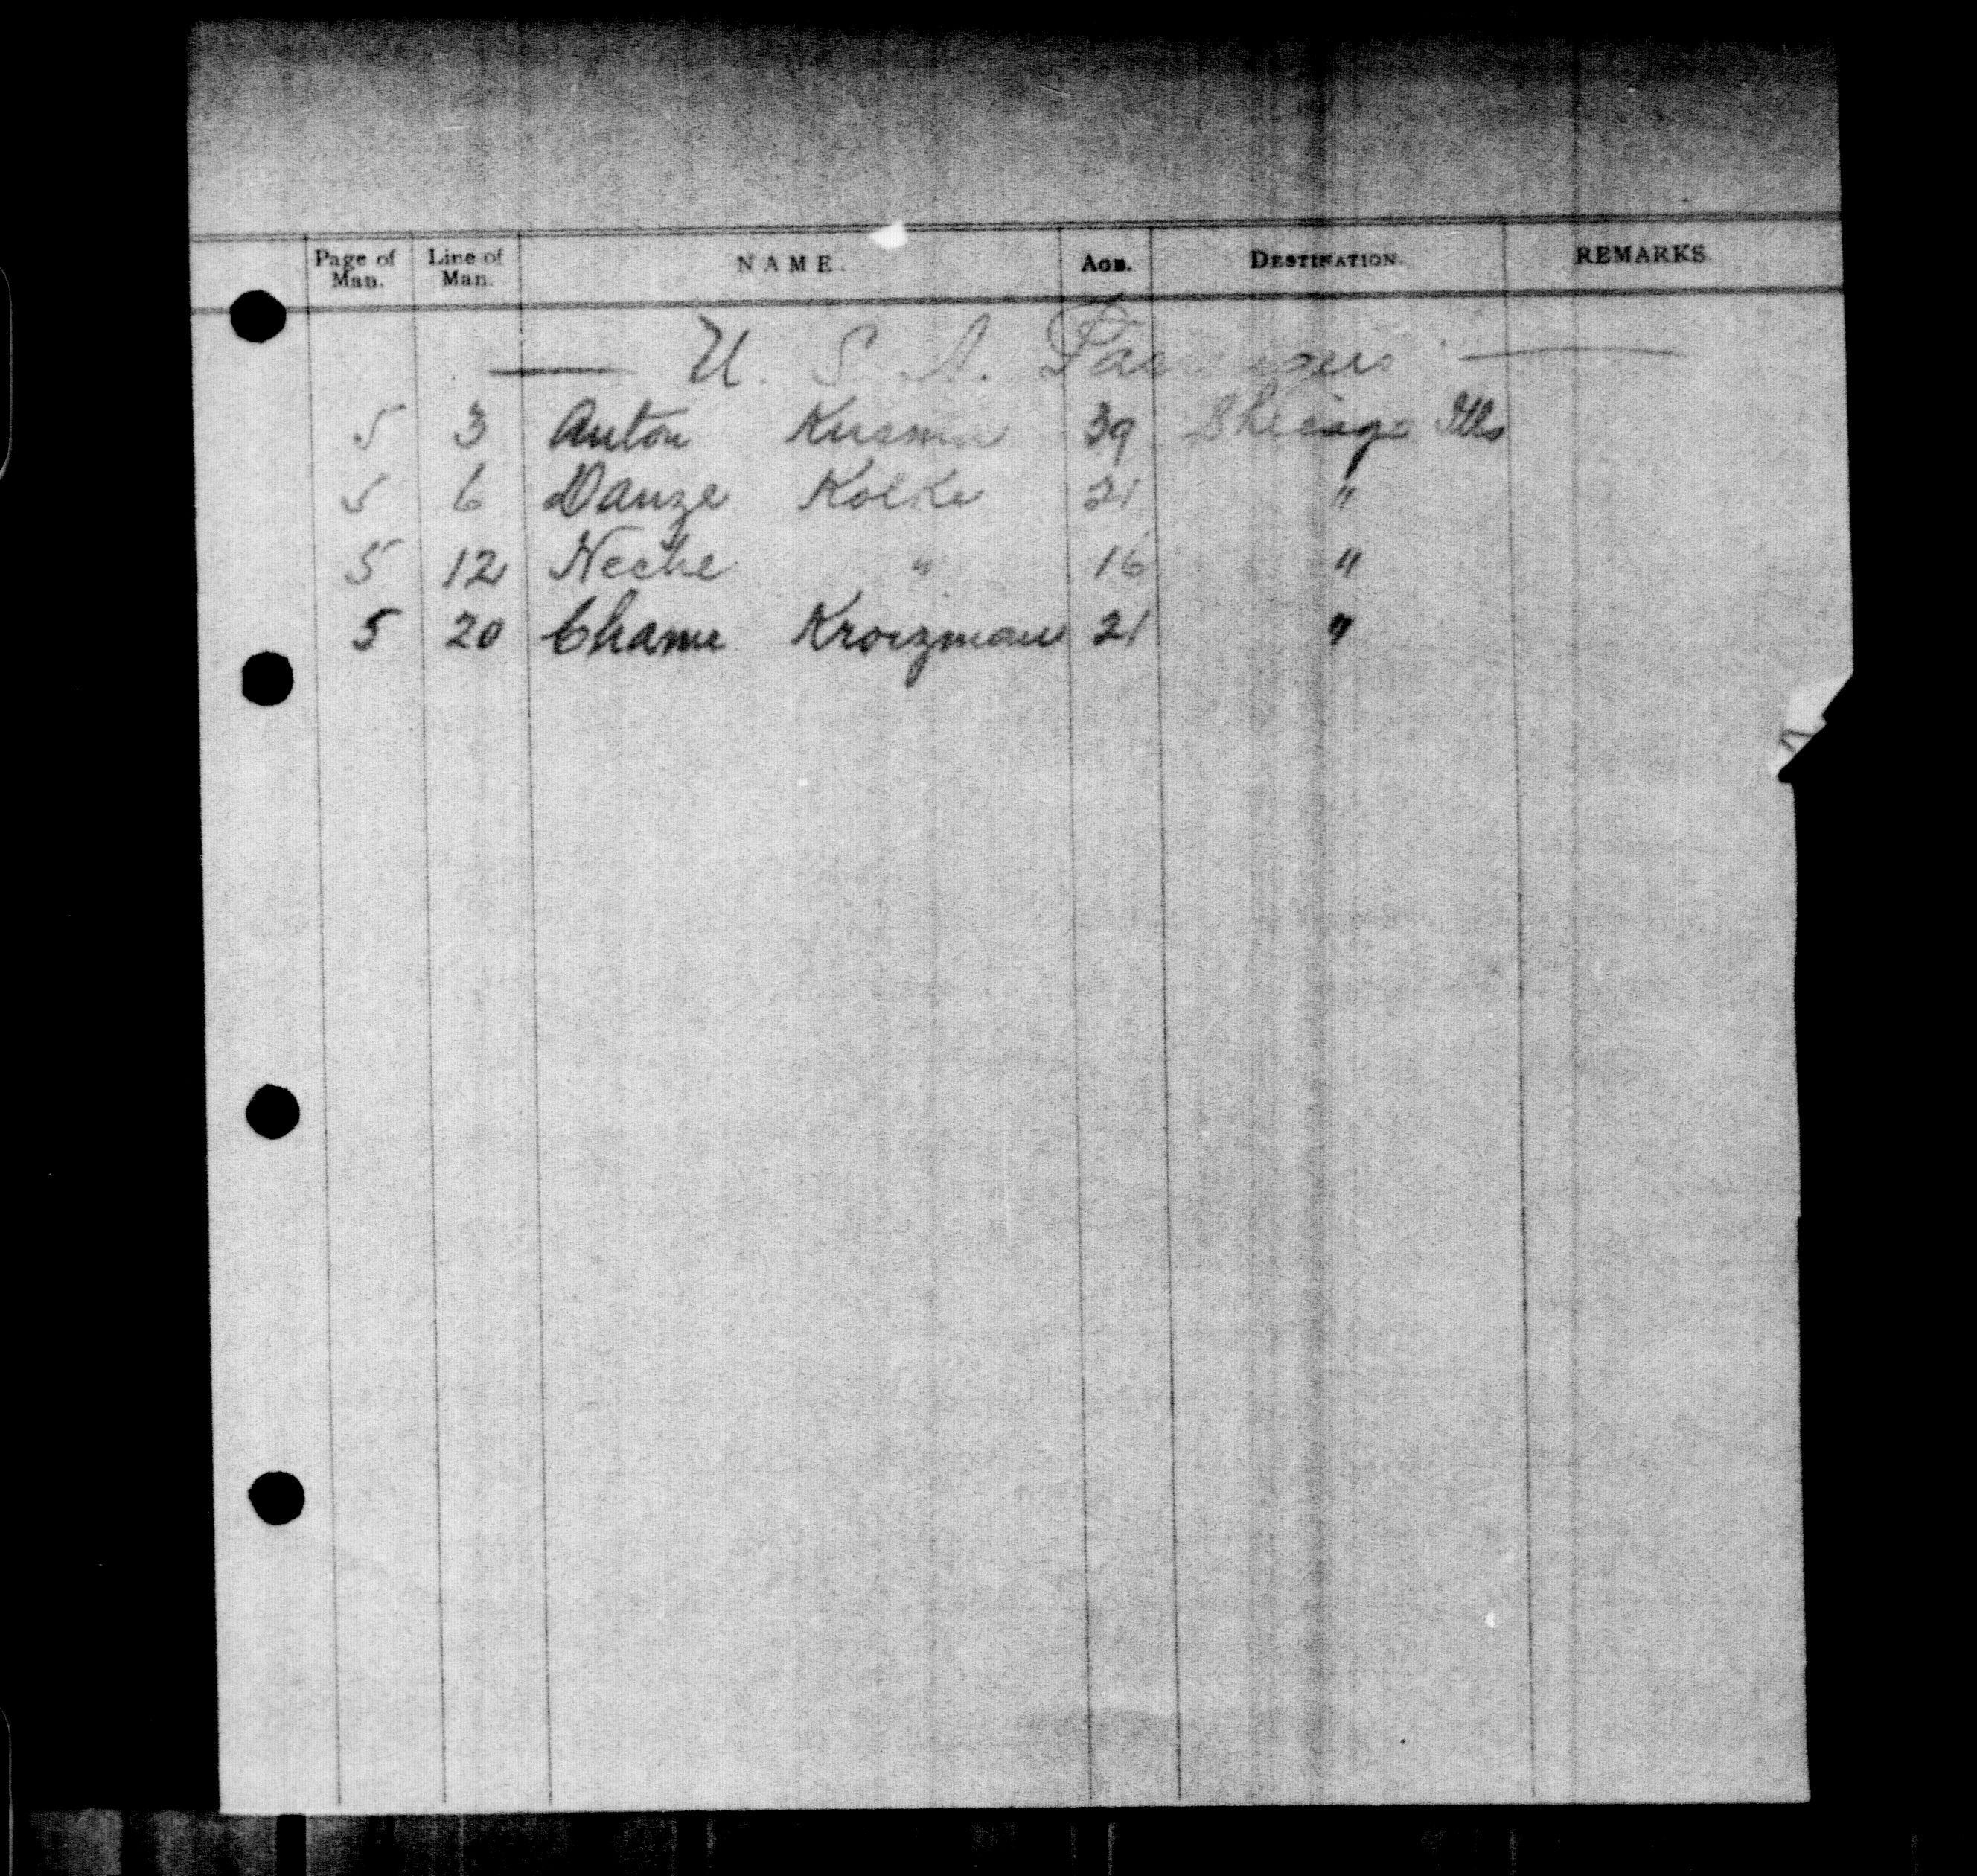 Page of Man. Line of Man. NAME. AGE. DESTINATION. REMARKS.
U. S. A. Passengers
5 3 Anton Kusma 39 Chicago Ills
5 6 Danze Kolke 21 "
5 12 Neche " 16 "
5 20 Chame Kroizman 21 "